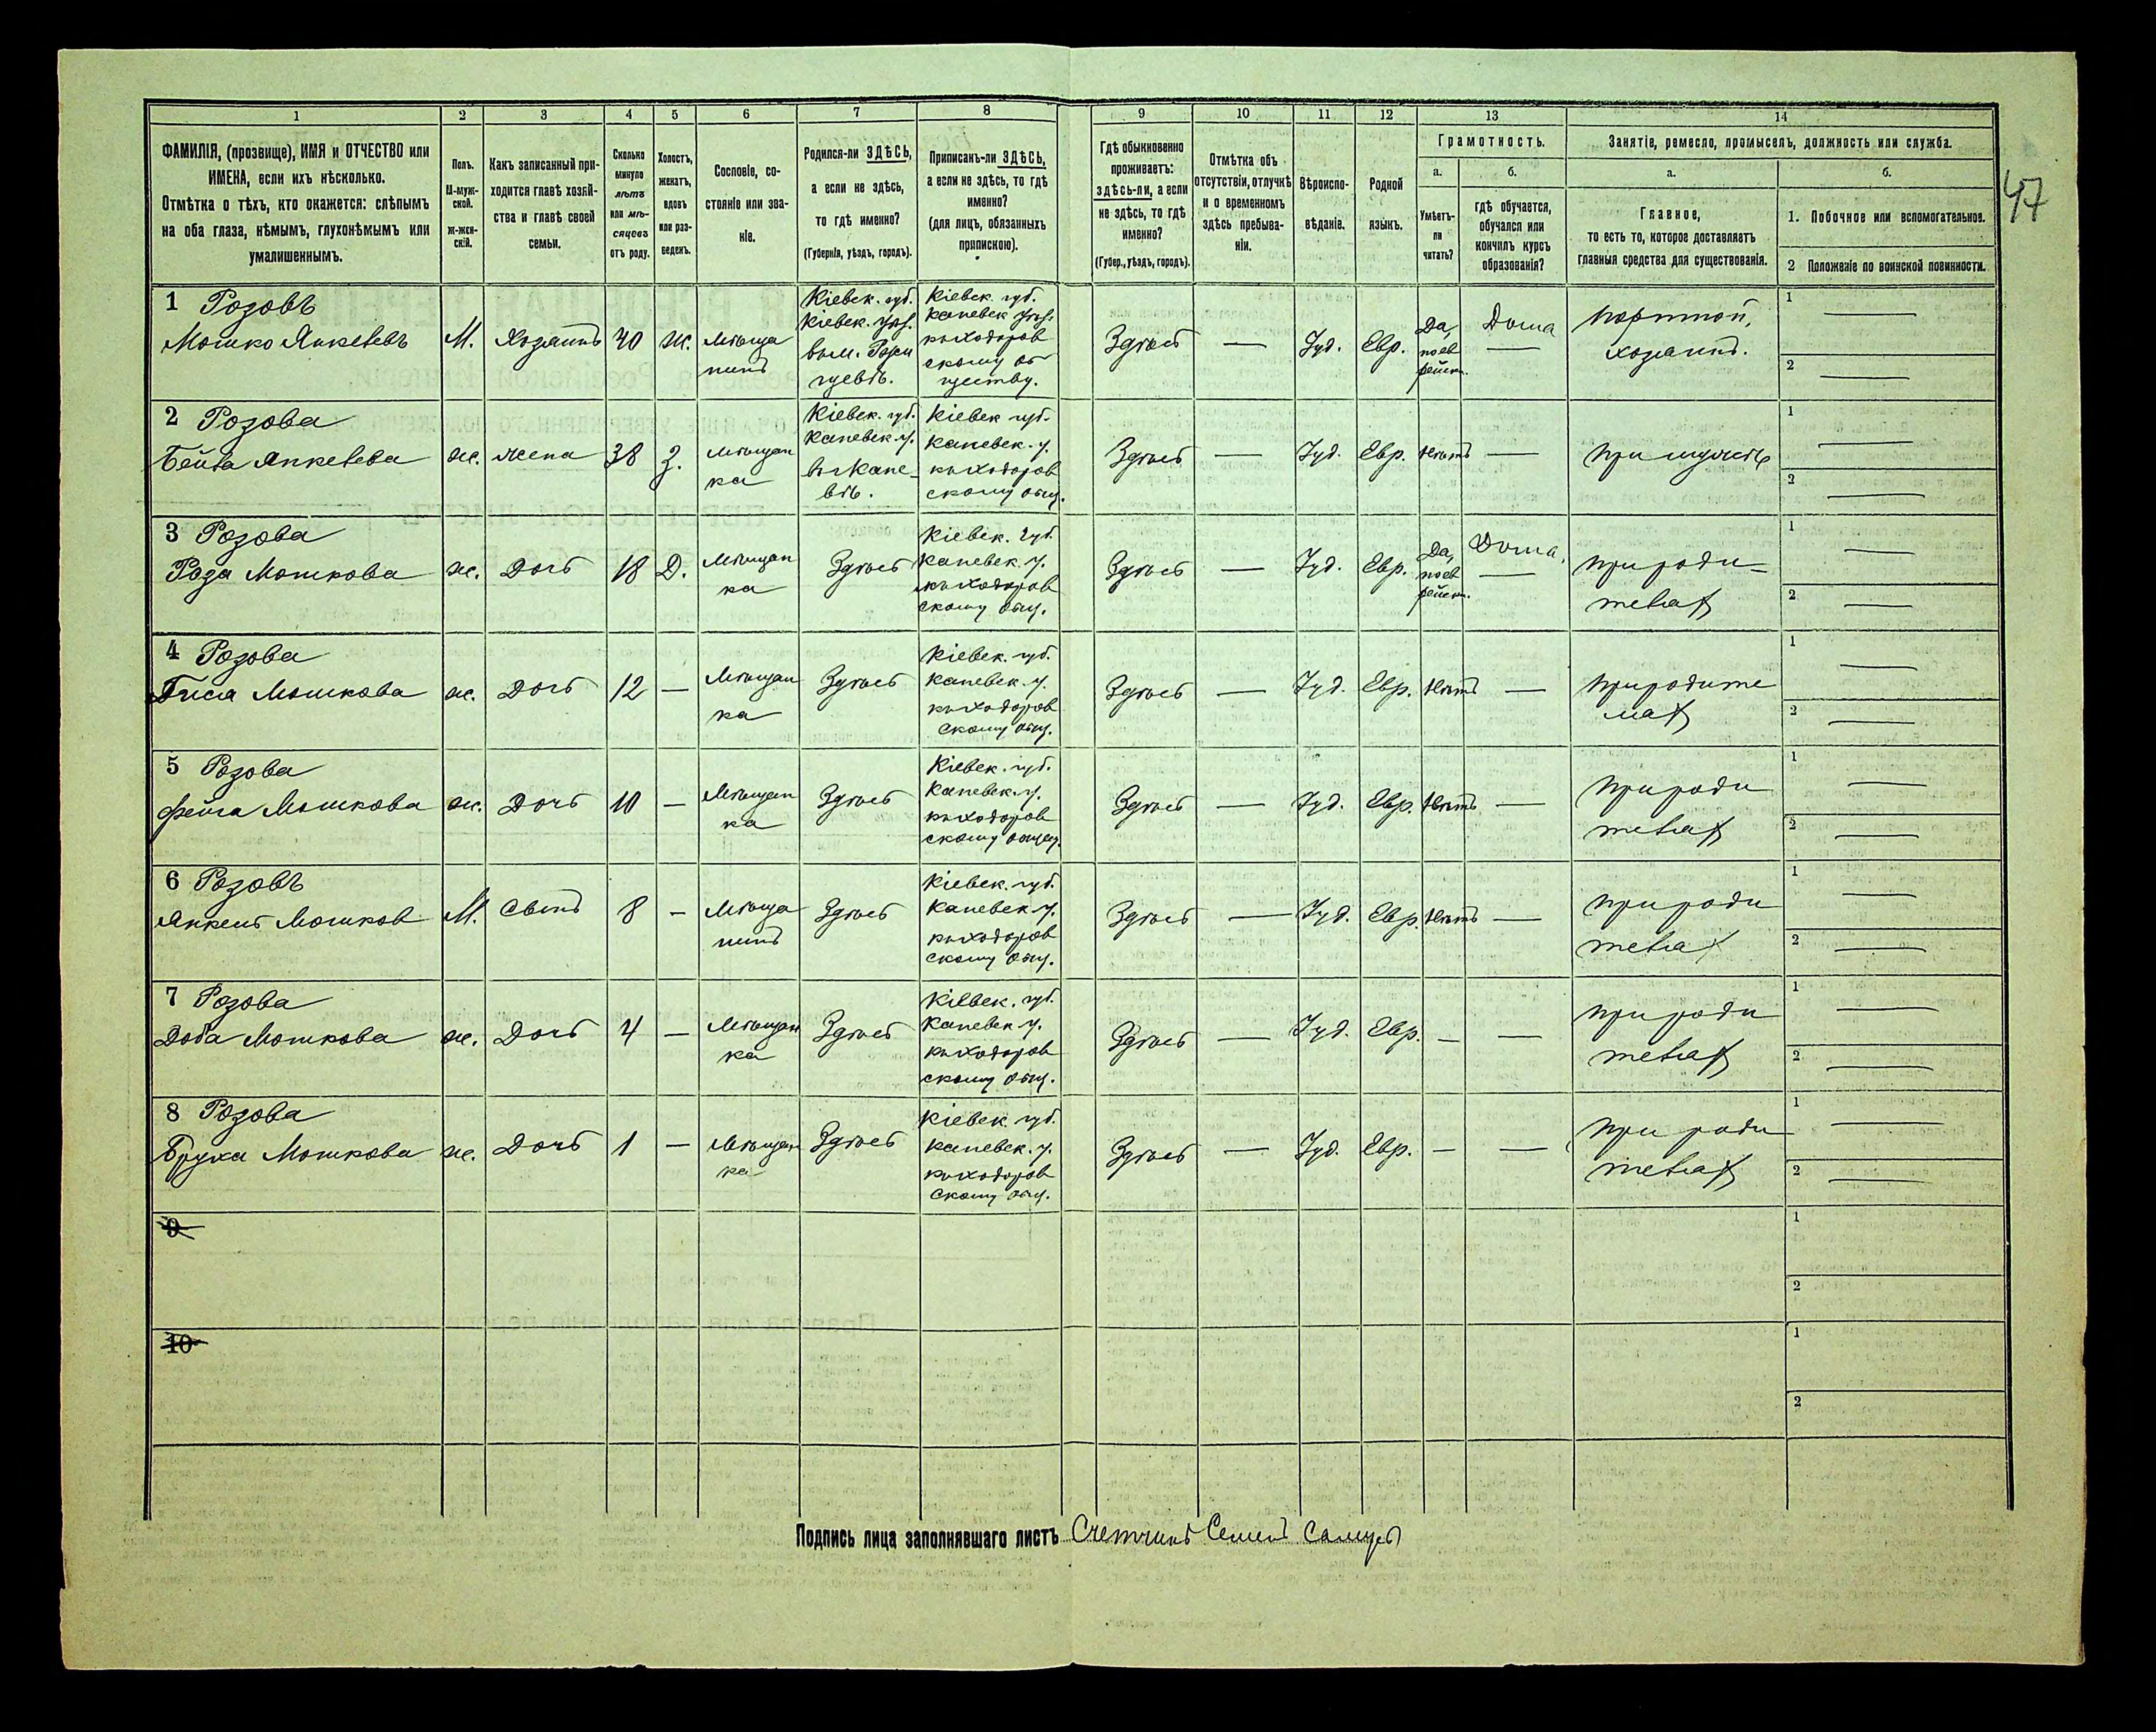 47
1 2 3 4 5 6 7 8 9 10 11 12 13 14
ФАМИЛІЯ, (прозвище), ИМЯ и ОТЧЕСТВО или
ИМЕНА, если ихъ нѣсколько.
Отмѣтка о тѣхъ, кто окажется: слѣпымъ
на оба глаза, нѣмымъ, глухонѣмымъ или
умалишеннымъ.
Полъ.
М-муж-
ской.
ж-жен-
скій.
Какъ записанный при-
ходится главѣ хозяй-
ства и главѣ своей
семьи.
Сколько
минуло
лѣтъ
или мѣ-
сяцевъ
отъ роду.
Холостъ,
женатъ,
вдовъ
или раз-
веденъ.
Сословіе, со-
стояніе или зва-
ніе.
Родился-ли ЗДѢСЬ,
а если не здѣсь,
то гдѣ именно?
(Губернія, уѣздъ, городъ).
Приписанъ-ли ЗДѢСЬ,
а если не здѣсь, то гдѣ
именно?
(для лицъ, обязанныхъ
припискою).
Гдѣ обыкновенно
проживаетъ:
здѣсь-ли, а если
не здѣсь, то гдѣ
именно?
(Губер., уѣздъ, городъ).
Отмѣтка объ
отсутствіи, отлучкѣ
и о временномъ
здѣсь пребыва-
ніи.
Вѣроиспо-
вѣданіе.
Родной
языкъ.
Грамотность.
а.
Умѣетъ-
ли
читать?
б.
гдѣ обучается,
обучался или
кончилъ курсъ
образованія?
Занятіе, ремесло, промыселъ, должность или служба.
а.
Главное,
то есть то, которое доставляетъ
главныя средства для существованія.
б.
1. Побочное или вспомогательное.
2 Положеніе по воинской повинности.
1 Розовъ
Мошко Янкелевъ
М.
Хозяинъ
40
Ж.
Мѣща
нинъ
Кіевск. губ.
Кіевск. уѣз.
Кіевск. губ.
Каневск. уѣз.
кыходоров
скому об
ществу.
Здѣсь
—
Іуд.
Евр.
Да,
по ев
рейск.
Дома
—
Портной,
хозяинъ.
1 —
2 —
2 Розова
Бейла Янкелева
ж.
жена
38
З.
Мѣщан
ка
Кіевск. губ.
Каневск. у.
въ Кане
вѣ.
Кіевск губ.
Каневск. у.
кыходоров
скому общ.
Здѣсь
—
Іуд.
Евр.
Нѣтъ
—
При мужѣ
1 —
2 —
3 Розова
Роза Мошкова
ж.
Дочь
18
Д.
Мѣщан
ка
Здѣсь
Кіевск. губ.
Каневск у.
кыходоров
скому общ.
Здѣсь
—
Іуд.
Евр.
Да,
по ев
рейск.
Дома.
—
При роди-
телях
1 —
2 —
4 Розова
Гися Мошкова
ж.
Дочь
12
—
Мѣщан
ка
Здѣсь
Кіевск. губ.
Каневск. у.
кыходоров
скому общ.
Здѣсь
—
Іуд.
Евр.
Нѣтъ
—
При родите
лях
1 —
2 —
5 Розова
Фейга Мошкова
ж.
Дочь
10
—
Мѣщан
ка
Здѣсь
Кіевск. губ.
Каневск. у.
кыходоров
скому общ.
Здѣсь
—
Іуд.
Евр.
Нѣтъ
—
При роди
телях
1 —
2 —
6 Розовъ
Янкель Мошков
М.
Сынъ
8
—
Мѣща
нинъ
Здѣсь
Кіевск. губ.
Каневск у.
кыходоров
скому общ.
Здѣсь
—
Іуд.
Евр.
Нѣтъ
—
При роди
телях
1 —
2 —
7 Розова
Доба Мошкова
ж.
Дочь
4
—
Мѣщан
ка
Здѣсь
Кіевск. губ.
Каневск у.
кыходоров
скому общ.
Здѣсь
—
Іуд.
Евр.
—
—
При роди
телях
1 —
2 —
8 Розова
Бруха Мошкова
ж.
Дочь
1
—
Мѣщан
ка
Здѣсь
Кіевск. губ.
Каневск. у.
кыходоров
скому общ.
Здѣсь
—
Іуд.
Евр.
—
—
При роди
телях
1 —
2 —
9
1
2
10
1
2
Подпись лица заполнявшаго листъ Счетчикъ Семенъ